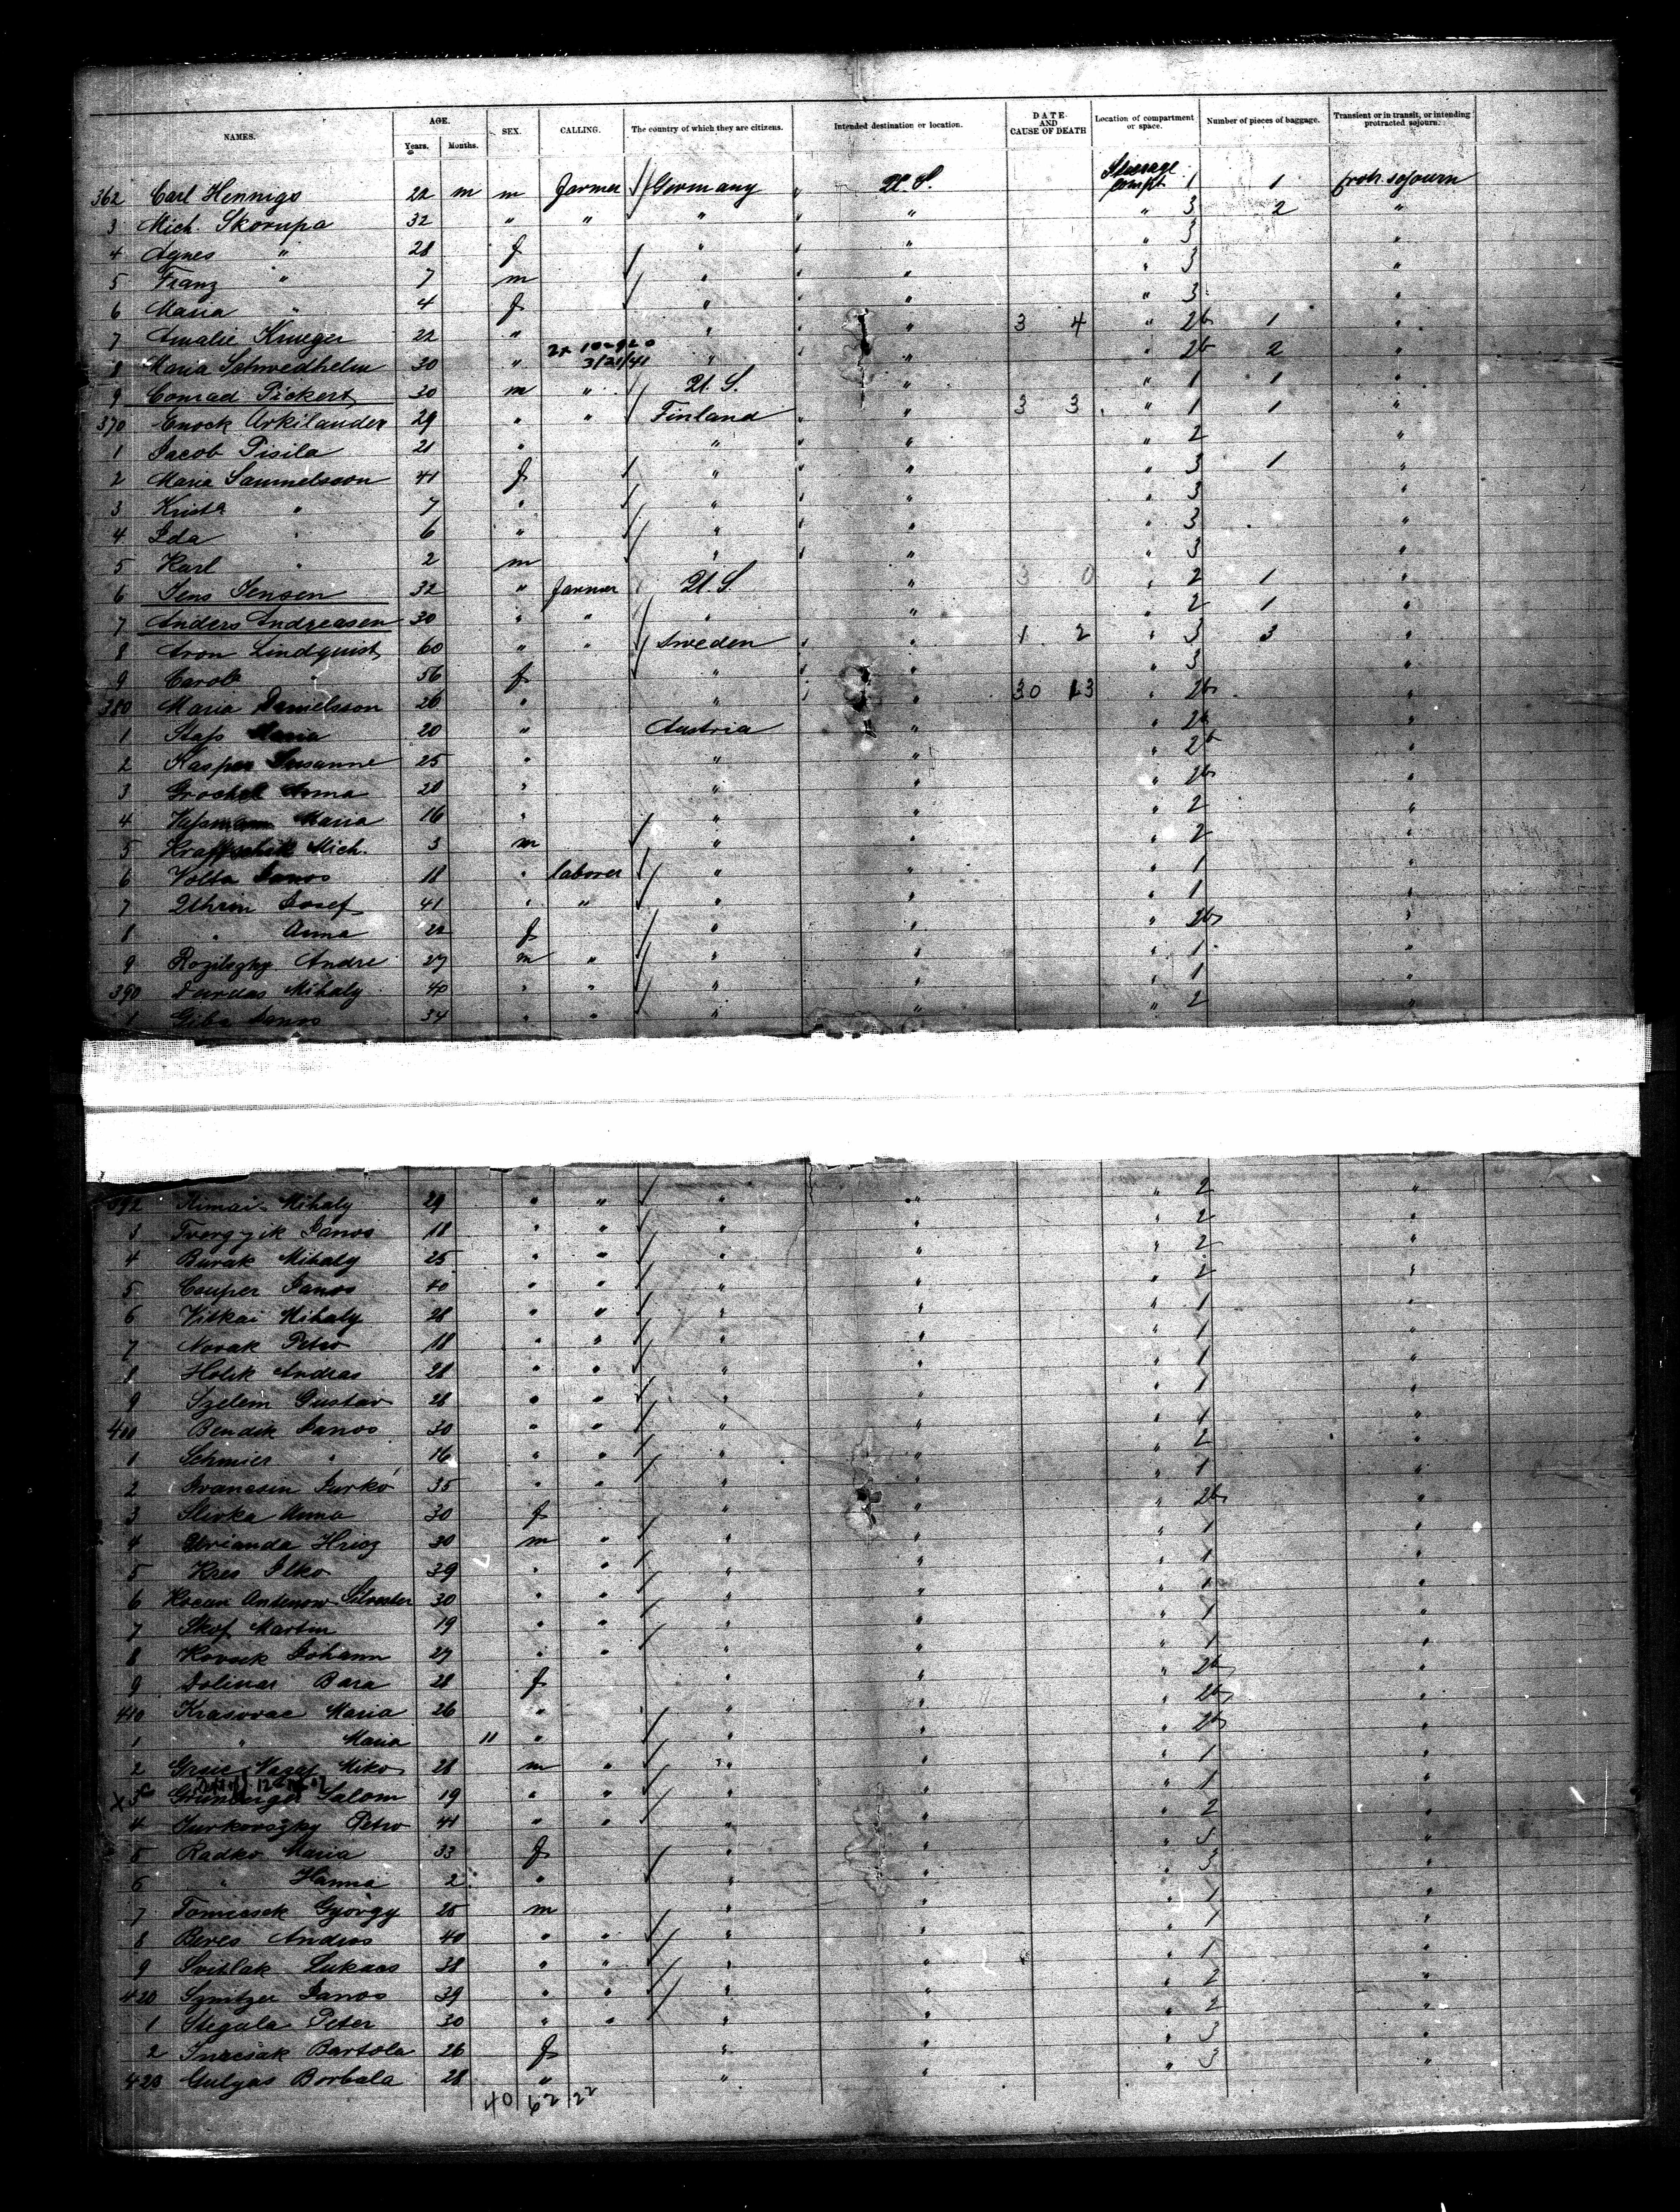 NAMES. AGE. Years. Months. SEX. CALLING. The country of which they are citizens. Intended destination or location. DATE AND CAUSE OF DEATH Location of compartment or space. Number of pieces of baggage. Transient or in transit, or intending protracted sojourn.
362 Carl Hennigs 22 m m farmer Germany " U.S. Steerage compt 1 1 protr. sojourn
3 Mich. Skorupa 32 " " " " " 3 2 "
4 Agnes " 28 f " " " 3 "
5 Franz " 7 m " " " 3 "
6 Maria " 4 f " " " 3 "
7 Amalie Krueger 22 " " " 3 4 " 2b 1 "
8 Maria Schwedhelm 30 " 3/21/41 " " " 2b 2 "
9 Conrad Pickert 30 m " U.S. " " 1 1 "
370 Enock Arkilander 29 " " Finland " 3 3 " 1 1 "
1 Jacob Pisila 21 " " " " 2 "
2 Maria Sammelsson 41 f " " " 3 1 "
3 Krista " 7 " " " " 3 "
4 Ida " 6 " " " " 3 "
5 Karl " 2 m " " " 3 "
6 Jens Jensen 32 " farmer U.S. " 3 0 " 2 1 "
7 Anders Andreasen 30 " " " " " 2 1 "
8 Aron Lindquist 60 " " Sweden " 1 2 " 3 3 "
9 Carol " 56 f " " " 3 "
380 Maria Danielsson 26 " " " 30 13 " 2b "
1 Maria 20 " Austria " " 2b "
2 Kasper Susanne 25 " " " " 2b "
3 Anna 20 " " " " 2b "
4 Maria 16 " " " " 2 "
5 Mich. 3 m " " " 2 "
6 Volta Janos 18 " laborer " " " 1 "
7 Josef 41 " " " " " 1 "
8 " Anna 22 f " " " 2b "
9 Andre 27 m " " " " 1 "
390 Dardas Mihaly 40 " " " " " 1 "
1 Giba Janos 34 " " " " " 2 "
392 Mihaly 29 " " " " " 2 "
3 Janos 18 " " " " " 2 "
4 Burak Mihaly 25 " " " " " 2 "
5 Couper Janos 40 " " " " " 2 "
6 Vitkai Mihaly 28 " " " " " 1 "
7 Novak Petro 18 " " " " " 1 "
8 Holik Andras 28 " " " " " 1 "
9 Szelem Gustav 28 " " " " " 1 "
400 Bendik Janos 30 " " " " " 1 "
1 Schmier " 16 " " " " " 2 "
2 Ivancsin Jurko 35 " " " " " 1 "
3 Slivka Anna 30 f " " " 2b "
4 30 m " " " " 1 "
5 Kres Ilko 39 " " " " " 1 "
6 Silvester 30 " " " " " 1 "
7 Skof Martin 19 " " " " " 1 "
8 Johann 27 " " " " " 1 "
9 Dolinar Bara 28 f " " " 2b "
410 Krasovac Maria 26 " " " " 2b "
1 " Maria 11 " " " " 2b "
2 Miko 28 m " " " " 1 "
3 Salom 19 " " " " " 1 "
4 Jurkovszky Petro 41 " " " " " 2 "
5 Radko Maria 33 f " " " 3 "
6 " Hanna 2 " " " " 3 "
7 Tomcsek György 25 m " " " 1 "
8 Beres Andras 40 " " " " " 1 "
9 Svetlak Lukacs 38 " " " " " 1 "
420 Janos 39 " " " " " 2 "
1 Stegala Peter 30 " " " " " 2 "
2 Bartola 26 f " " " 3 "
423 Gulyas Borbala 28 " " " " 3 "
40 62 22